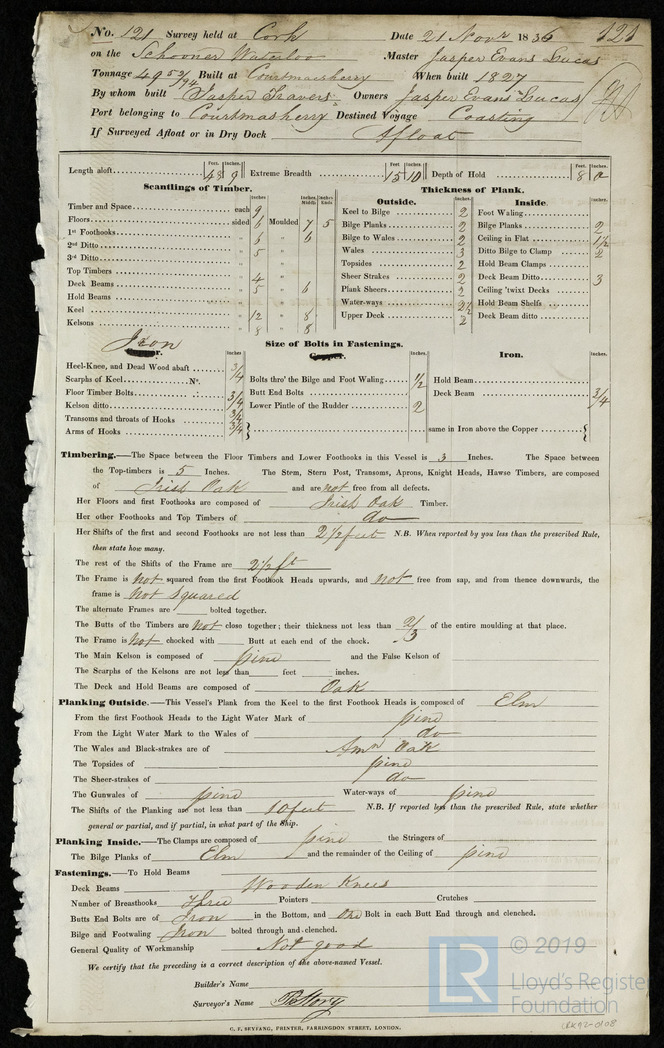 No. 121 Survey held at Cork Date 21 Novr 1836 121
on the Schooner Waterloo Master Jasper Evans Lucas
Tonnage 49 52/94 Built at Courtmasherry When built 1827
By whom built Jasper Travers Owners Jasper Evans Lucas
Port belonging to Courtmasherry Destined Voyage Coasting
If Surveyed Afloat or in Dry Dock Afloat
Feet. Inches. Feet. Inches. Feet. Inches.
Length aloft 48 9 Extreme Breadth 15 10 Depth of Hold 8 0
Scantlings of Timber. Thickness of Plank.
Inches Inches Middle Inches Ends Outside. Inches Inside. Inches.
Timber and Space each 9 Keel to Bilge 2 Foot Waling
Floors sided 6 Moulded 7 5 Bilge Planks 2 Bilge Planks 2
1st Foothooks " 6 " 6 Bilge to Wales 2 Ceiling in Flat 1½
2nd Ditto " 5 " Wales 3 Ditto Bilge to Clamp 2
3rd Ditto " " Topsides 2 Hold Beam Clamps
Top Timbers " 4 " Sheer Strakes 2 Deck Beam Ditto 3
Deck Beams " 5 " 6 Plank Sheers 2 Ceiling 'twixt Decks
Hold Beams " " Water-ways 2½ Hold Beam Shelfs
Keel " 12 " 8 Upper Deck 2 Deck Beam ditto
Kelsons " 8 " 8
Iron Size of Bolts in Fastenings.
Copper. Iron.
Inches Inches Inches.
Heel-Knee, and Dead Wood abaft 3/4
Scarphs of Keel No. Bolts thro' the Bilge and Foot Waling 1/2 Hold Beam
Floor Timber Bolts 3/4 Butt End Bolts Deck Beam 3/4
Kelson ditto 3/4 Lower Pintle of the Rudder 2
Transoms and throats of Hooks 3/4
Arms of Hooks 3/4 } } same in Iron above the Copper }
Timbering.—The Space between the Floor Timbers and Lower Foothooks in this Vessel is 3 Inches. The Space between
the Top-timbers is 5 Inches. The Stem, Stern Post, Transoms, Aprons, Knight Heads, Hawse Timbers, are composed
of Irish Oak and are not free from all defects.
Her Floors and first Foothooks are composed of Irish Oak Timber.
Her other Foothooks and Top Timbers of do
Her Shifts of the first and second Foothooks are not less than 2½ feet N.B. When reported by you less than the prescribed Rule,
then state how many.
The rest of the Shifts of the Frame are 2½ ft
The Frame is not squared from the first Foothook Heads upwards, and not free from sap, and from thence downwards, the
frame is not squared
The alternate Frames are bolted together.
The Butts of the Timbers are not close together; their thickness not less than 2/3 of the entire moulding at that place.
The Frame is not chocked with Butt at each end of the chock.
The Main Kelson is composed of pine and the False Kelson of
The Scarphs of the Kelsons are not less than feet inches.
The Deck and Hold Beams are composed of Oak
Planking Outside.—This Vessel's Plank from the Keel to the first Foothook Heads is composed of Elm
From the first Foothook Heads to the Light Water Mark of pine
From the Light Water Mark to the Wales of do
The Wales and Black-strakes are of Amn Oak
The Topsides of pine
The Sheer-strakes of do
The Gunwales of pine Water-ways of pine
The Shifts of the Planking are not less than 10 feet N.B. If reported less than the prescribed Rule, state whether
general or partial, and if partial, in what part of the Ship.
Planking Inside.—The Clamps are composed of pine the Stringers of
The Bilge Planks of Elm and the remainder of the Ceiling of pine
Fastenings.—To Hold Beams
Deck Beams Wooden Knees
Number of Breasthooks Three Pointers Crutches
Butts End Bolts are of Iron in the Bottom, and One Bolt in each Butt End through and clenched.
Bilge and Footwaling Iron bolted through and clenched.
General Quality of Workmanship Not good
We certify that the preceding is a correct description of the above-named Vessel.
Builder's Name
Surveyor's Name
C. F. SEYFANG, PRINTER, FARRINGDON STREET, LONDON.
LR © 2019
Lloyd's Register
Foundation